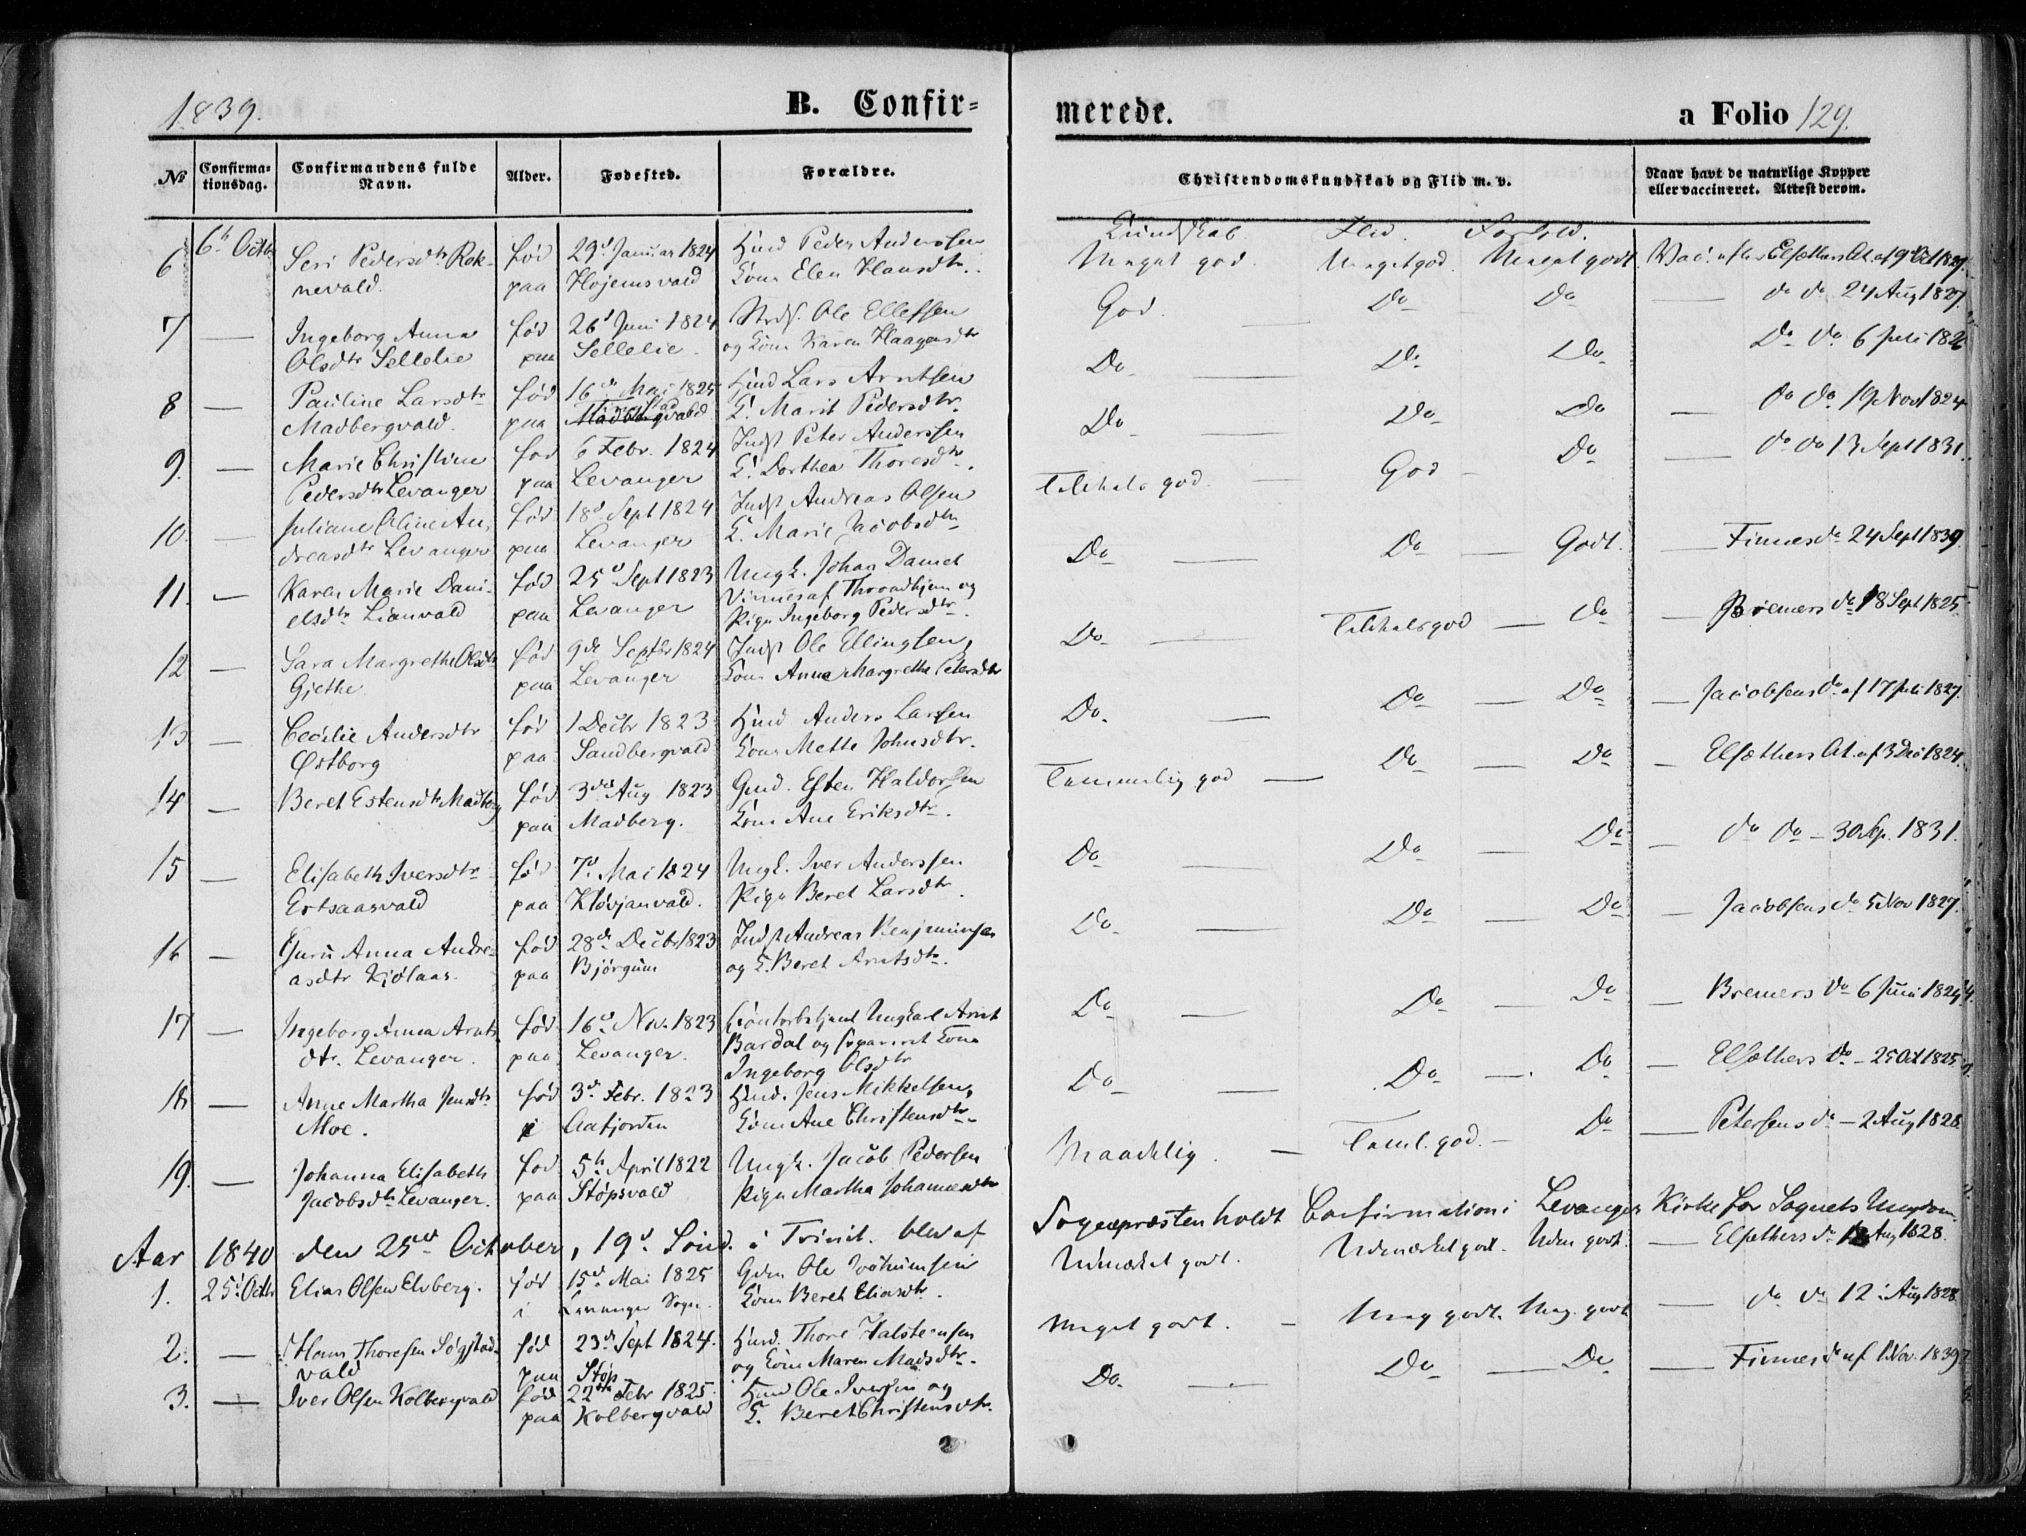 1839.
B. Confir=
merede.
a Folio 129.
No
Confirma-
tionsdag.
Confirmandens fulde
Navn.
Alder.
Fødested.
Forældre.
Christendomskundskab og Flid m. v.
Naar havt de naturlige Kopper
eller vaccineret. Attest derom.
Kundskab Flid. Forhold.
6 6h Octbr Seri Pedersdtr Rok- fød 29d Januar 1824 Huusd Peder Anderssen
nevald. paa Højemsvald Kone Elen Hansdtr.
Meget god. Meget god. Meget godt. Vac. efter Elsæthers At. af 9 Oct 1827.
7 — Ingeborg Anna fød 26d Juni 1824 Ole Ellefsen
Olsdtr Sellelie paa Sellelie. og Kone Karen Haagensdtr
God. — Do Do — do do 24 Aug 1827.
8 — Pauline Larsdtr fød 16de Mai 1825 Huusd Lars Arntsen
Madbergvald. paa Madbergvald K. Marit Pedersdtr.
Do — Do Do Do do 6 Juli 1826
9. — Marie Christine fød 6 Febr. 1824 Indst Peter Anderssen
Pedersdtr Levanger paa Levanger K. Dorthea Thoresdtr.
Do — Do Do — do do 19 Nov 1824
10. — Juliane Oline An- fød 18d Sept 1824 Indst Andreas Olsen
dreasdtr Levanger paa Levanger K. Marie Jacobsdtr
Temmelig god. — God — Do — do do 13 Sept 1831.
11. — Karen Marie Dani- fød 25d Sept 1823 Ungk. Johan Daniel
elsdtr Lianvald paa Levanger Vinnes af Throndhjem og
Pige Ingeborg Pedersdtr.
Do — Do — Godt. — Finnes do 24 Sept 1839.
12 — Sara Margrethe Olsdtr fød 9de Septbr 1824 Indst Ole Ellingsen,
Gjethe. paa Levanger Kone Anne Margrethe Petersdtr
Do — god — do — Bremers do 18 Sept 1825
13 — Cecilie Andersdtr fød 1 Decbr 1823 Huusd Anders Larsen
Østborg paa Sandbergvald Kone Mette Johnsdtr.
Do. — Do — Do — Jacobsens do af 17 Juli 1827.
14 — Beret Estensdtr Madberg fød 3die Aug 1823 Gmd. Esten Haldorsen
paa Madberg. Kone Ane Eriksdtr.
Temmelig god — Do — Do — Elsæthers At. af 3 Dec 1824.
15 — Elisabeth Iversdtr fød 7d Mai 1824 Ungk. Iver Anderssen
Ertsaasvald paa Kløvjanvald. Pige Beret Larsdtr.
Do — Do — Do — do do — 30 Sep. 1831.
16 — Guru Anna Andre- fød 28de Decbr 1823 Indst Andreas Benjaminsen
asdtr Kjølaas. paa Bjørgum og K. Beret Arntsdtr.
Do — Do — Do — Jacobsens do 5 Nov 1827.
17 — Ingeborg Anna Arnts- fød 16d Nov. 1823 Contorbetjent Ungkarl Arnt
dtr. Levanger. paa Levanger. Bardal og separeret Kone
Ingeborg Olsdtr
Do — Do — Do — Bremers do 6 Juni 1824.
18 — Anne Martha Jensdtr fød 3d Febr. 1823 Huusd. Jens Mikkelsen,
Moe. i Aafjorden Kone Ane Christensdtr.
Do — Do — Do — Elsæthers do — 25 Oct 1825
19. — Johanna Elisabeth fød 5h April 1822 Ungk. Jacob Pedersen
Jacobsdtr Levanger. paa Støpsvald Pige Martha Johannesdtr
Maadelig. — Taml. god. — Do — Petersens do — 2 Aug 1828.
Aar 1840 den 25de October, 19d Sönd. i Trinit. blev af Sogneprästen holdt Confirmation i Levanger Kirke for Sognets Ungdom.
1. 25d Octbr Elias Olsen Elvberg. fød 15d Mai 1825 Gdm Ole Jochumsen
i Levanger Sogn. Kone Beret Eliasdtr.
Udmærket godt. Udmærket godt. Udm. godt. — Elsæthers do 18 Aug 1828.
2. — Hans Thoresen Sögstad- fød 23d Sept 1824. Huusd. Thore Halstensen
vald paa Støp og Kone Maren Madsdtr.
Meget godt. — Meg. godt. Meg. godt — do do 12 Aug 1828
3. — Iver Olsen Kolbergvald fød 22de Febr 1825. Huusd Ole Iversen og
paa Kolbergvald K. Beret Christensdtr.
Do. — Do — Do — Finnes do af 1 Nov. 1839